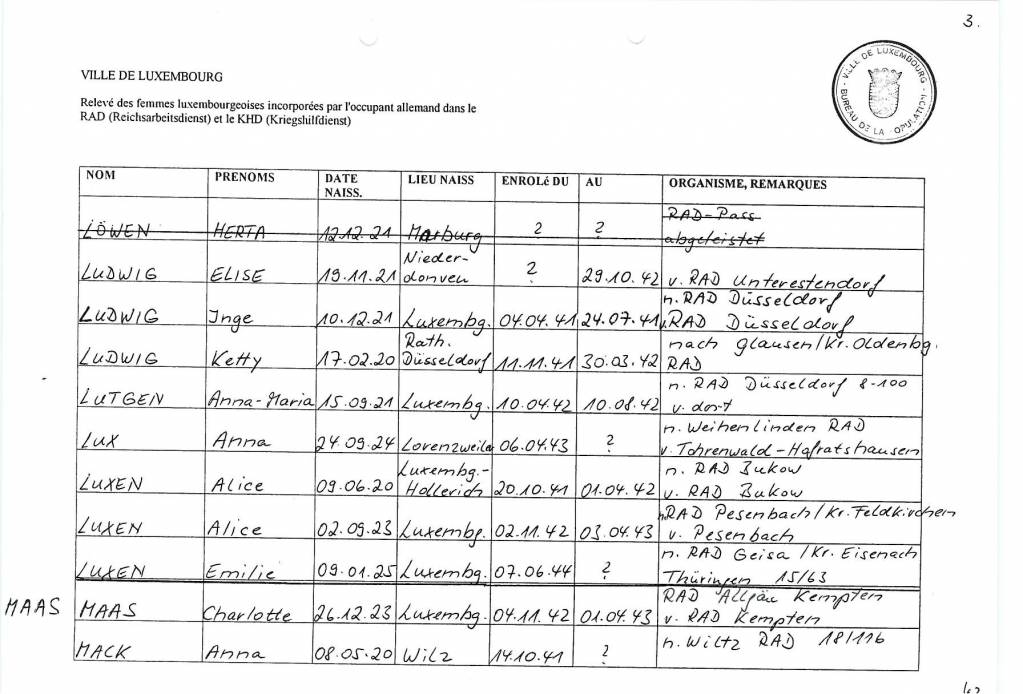 3.
VILLE DE LUXEMBOURG
Relevé des femmes luxembourgeoises incorporées par l'occupant allemand dans le
RAD (Reichsarbeitsdienst) et le KHD (Kriegshilfdienst)
VILLE DE LUXEMBOURG
BUREAU DE LA POPULATION
NOM PRENOMS DATE NAISS. LIEU NAISS ENROLé DU AU ORGANISME, REMARQUES
LÖWEN HERTA 12.12.21 Marburg ? ? RAD-Pass
abgeleistet
LUDWIG ELISE 19.11.21 Nieder-
donven ? 29.10.42 v. RAD Unterestendorf
LUDWIG Inge 10.12.21 Luxembg. 04.04.41 24.07.41 n. RAD Düsseldorf
v. RAD Düsseldorf
LUDWIG Ketty 17.02.20 Rath.
Düsseldorf 11.11.41 30.03.42 nach Glausen/Kr. Oldenbg.
RAD
LUTGEN Anna-Maria 15.09.21 Luxembg. 10.04.42 10.08.42 n. RAD Düsseldorf 8-100
v. dort
LUX Anna 24.09.24 Lorenzweiler 06.04.43 ? n. Weihenlinden RAD
v. Tohrenwald-Hafratshausen
LUXEN Alice 09.06.20 Luxembg.-
Hollerich 20.10.41 01.04.42 n. RAD Bukow
v. RAD Bukow
LUXEN Alice 02.09.23 Luxembg. 02.11.42 03.04.43 n. RAD Pesenbach/Kr. Feldkirchen
v. Pesenbach
LUXEN Emilie 09.01.25 Luxembg. 07.06.44 ? n. RAD Geisa/Kr. Eisenach
Thüringen 15/63
MAAS MAAS Charlotte 26.12.23 Luxembg. 04.11.42 01.04.43 RAD Allgäu Kempten
v. RAD Kempten
MACK Anna 08.05.20 Wilz 14.10.41 ? n. Wiltz RAD 18/116